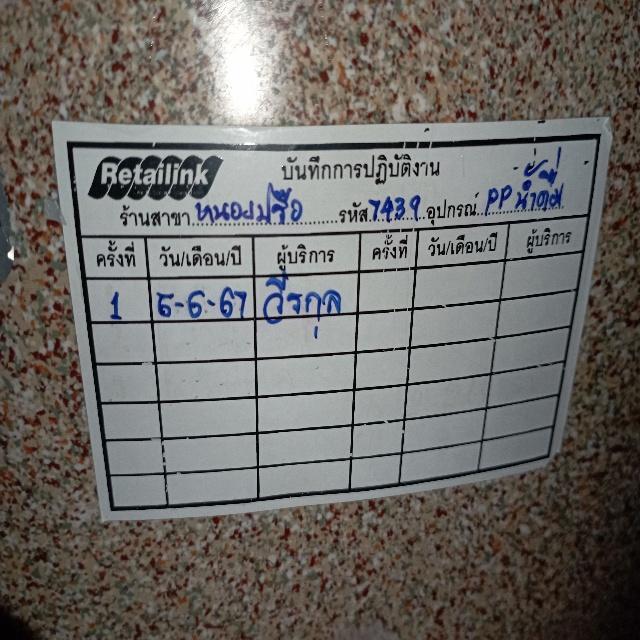 Retailink บันทึกการปฏิบัติงาน
ร้านสาขา หนองปรือ รหัส 7439 อุปกรณ์ PP น้ำดื่ม
ครั้งที่ วัน/เดือน/ปี ผู้บริการ ครั้งที่ วัน/เดือน/ปี ผู้บริการ
1 6-6-67 วีรกุล